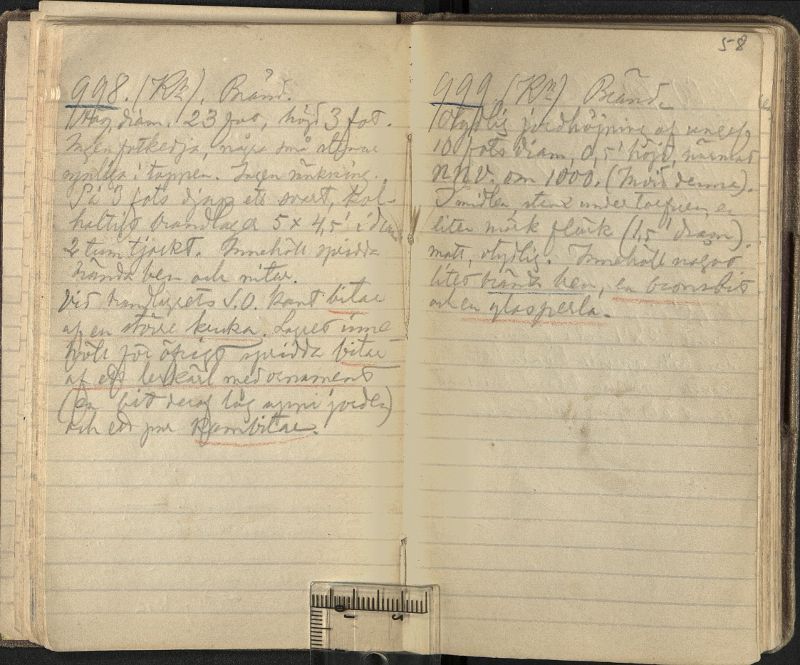 998. (Rr). Bränd.
Hög, diam. 23 fot, höjd 3 fot.
Ingen fotkedja, några små stenar
synliga i toppen. Ingen sänkning.
På 3 fots djup ett svart, kol-
haltigt brandlager 5 x 4,5' i diam
2 tum tjockt. Innehöll spridda
brända ben och nitar.
Vid brandlagrets S.O. kant bitar
af en större kruka. Lagret inne-
höll för öfrigt spridda bitar
af ett lerkärl med ornament
(en bit deraf låg uppe i jorden)
och ett par kambitar.
58
999. (Rr) Bränd.
Otydlig jordhöjning af ungef.
10 fots diam, 0,5' höjd, närmast
NNV. om 1000. (Invid denna).
I midten, strax under torfven, en
liten mörk fläck (1,5' diam).
matt, otydlig. Innehöll något
litet brända ben, en bronsbit
och en glasperla.
1 2